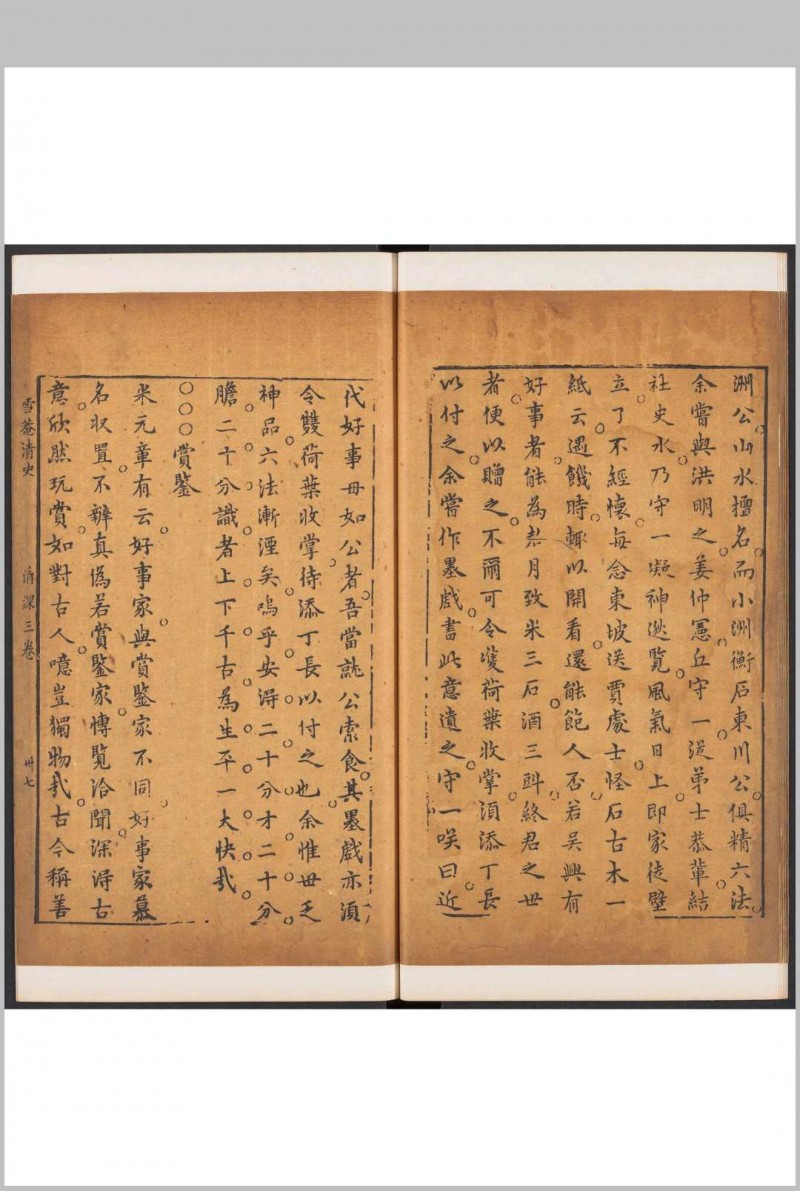 洲公山水擅名而小洲衡石東川公俱精六法
余嘗與洪明之姜仲憲丘守一送弟士恭輩結
社史水乃守一凝神遊覽風氣日上即家徒壁
立了不經懷每念東坡送賈處士怪石古木一
紙云遇饑時輒以開看還能飽人否若吳興有
好事者能為君月致米三石酒三㪷終君之世
者便以贈之不爾可令雙荷葉收掌須添丁長
以付之余嘗作墨戲書此意遺之守一咲曰近
代好事毋如公者吾當就公索食其墨戲亦須
令雙荷葉收掌待添丁長以付之也余惟世乏
神品六法漸湮矣嗚乎安得二十分才二十分
膽二十分識者上下千古為生平一大快哉
○○○賞鑒
米元章有云好事家與賞鑒家不同好事家慕
名收置不辨真偽若賞鑒家博覽洽聞深得古
意欣然玩賞如對古人噫豈獨物哉古今稱善
雪菴清史 清課三卷 卅七